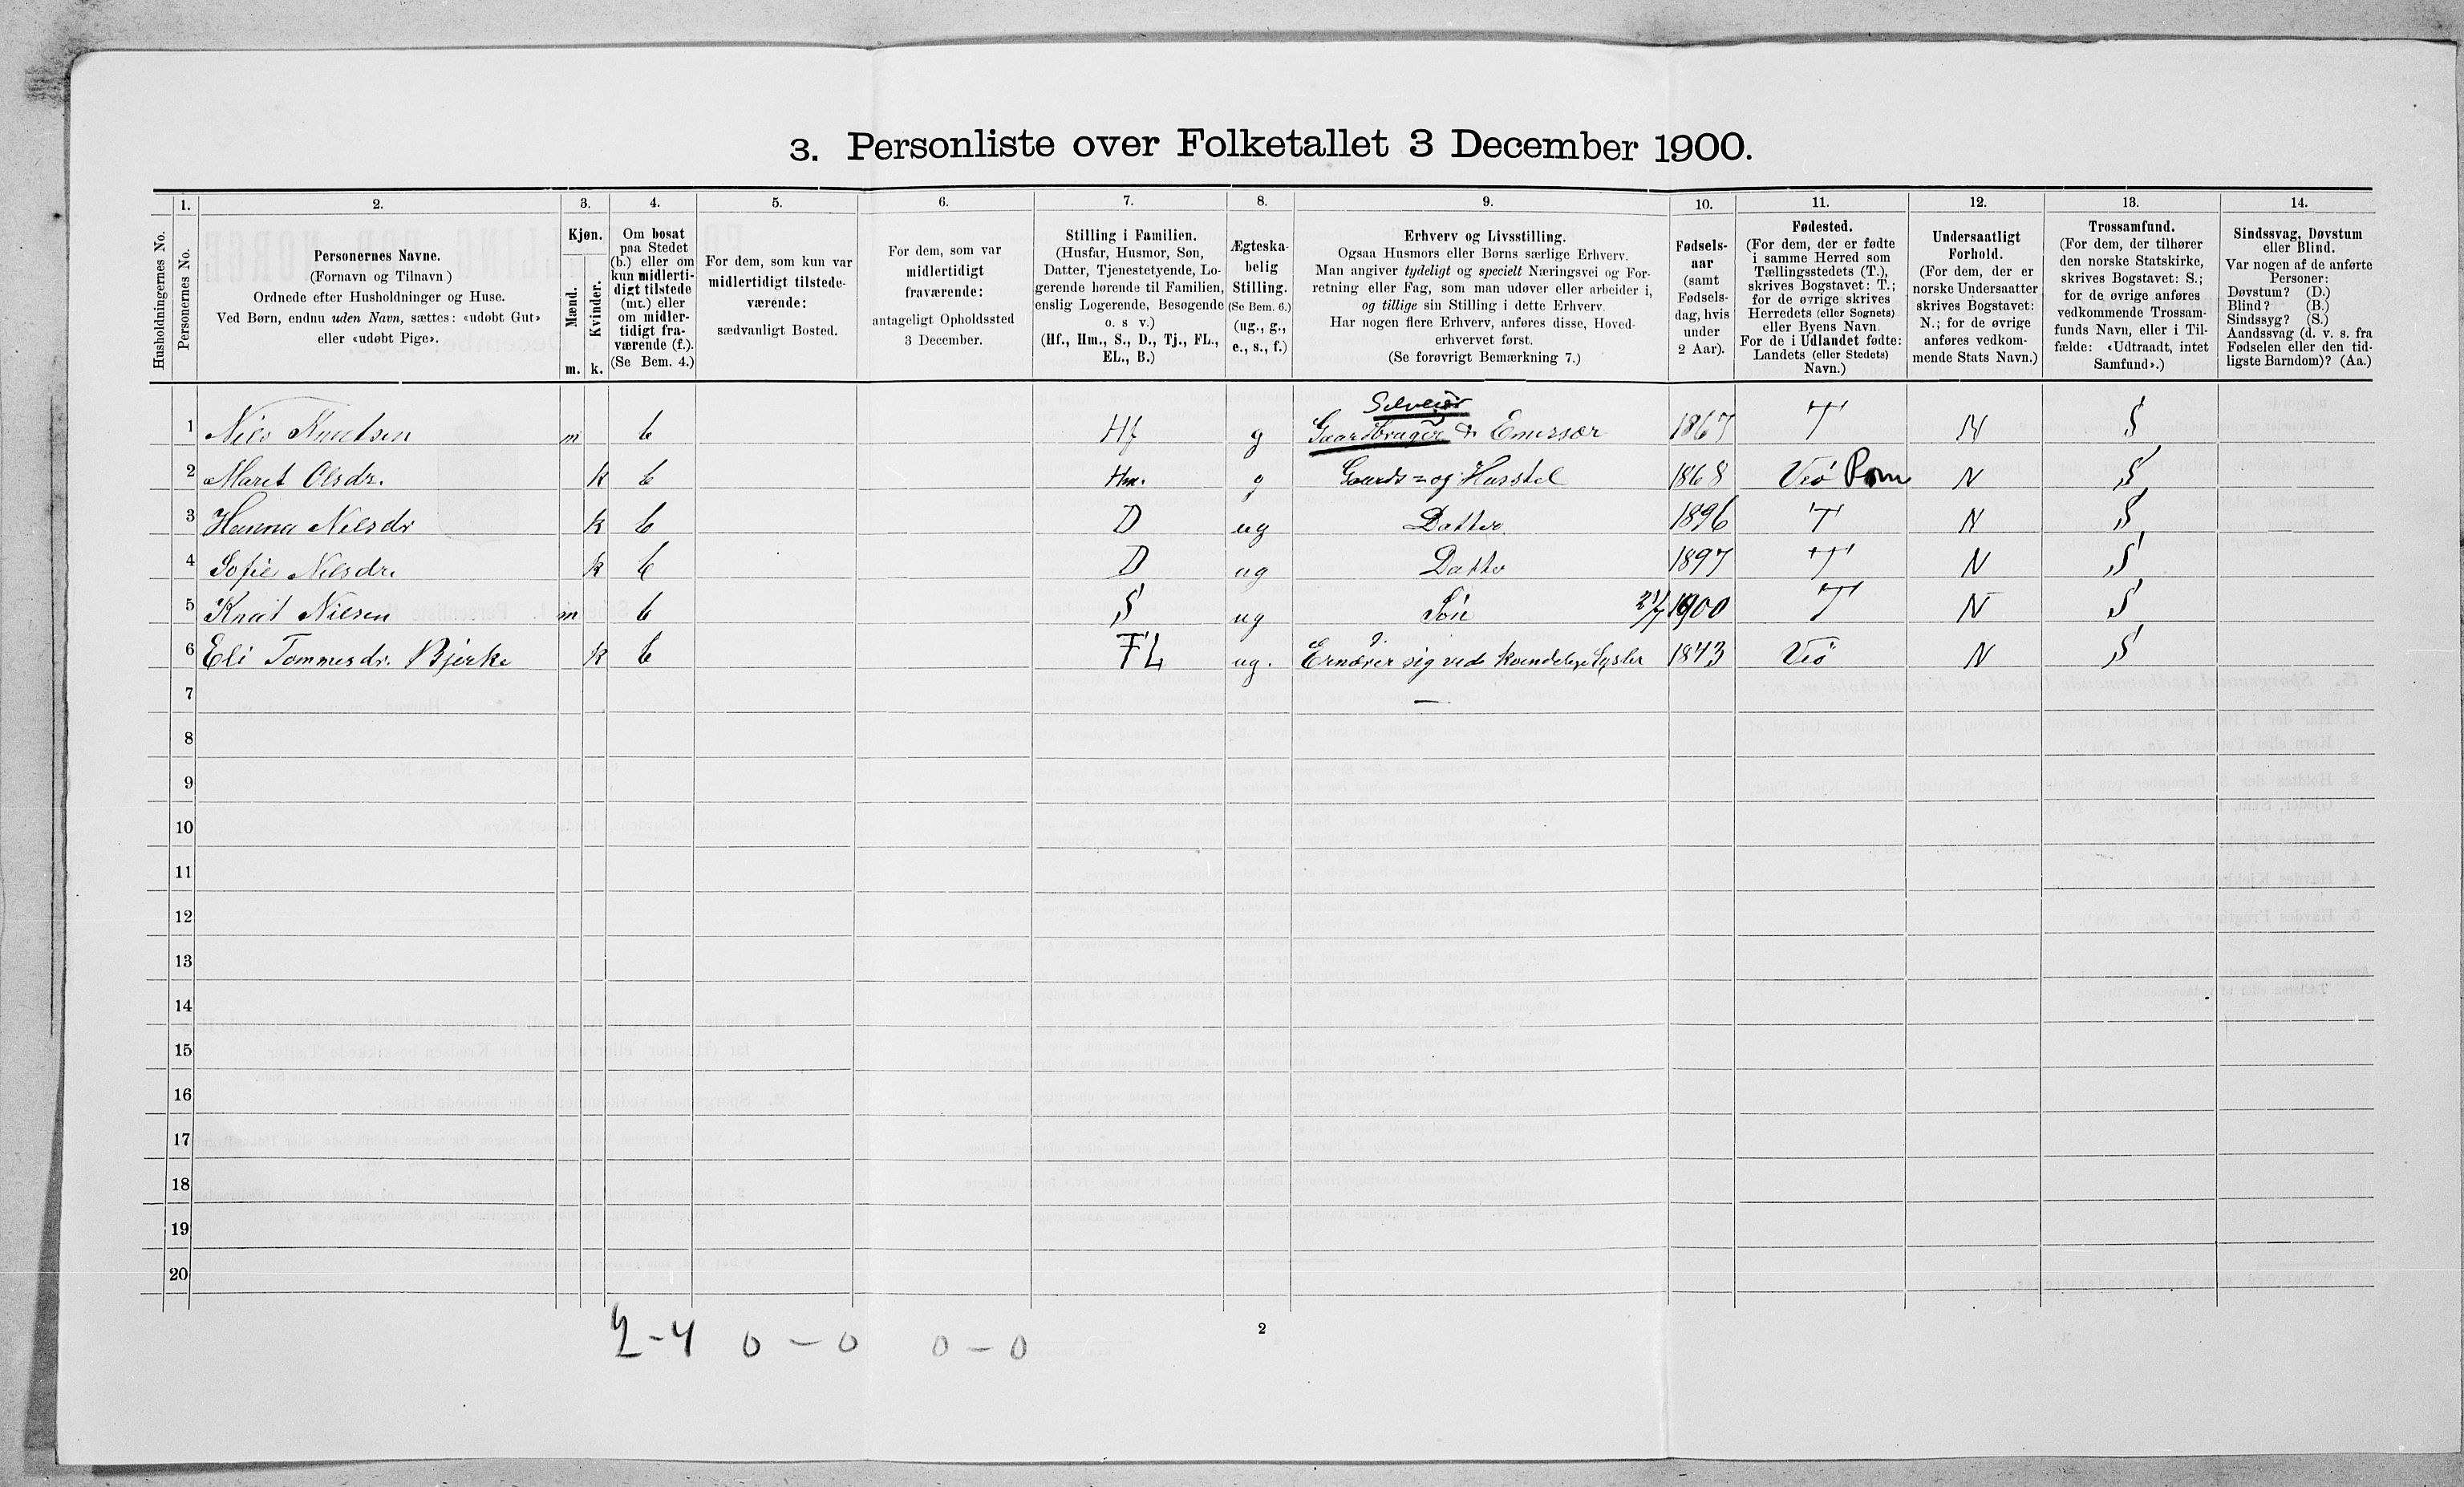 3. Personliste over Folketallet 3 December 1900.
Husholdningernes No.
1. Personernes No.
2. Personernes Navne.
(Fornavn og Tilnavn)
Ordnede efter Husholdninger og Huse.
Ved Børn, endnu uden Navn, sættes: «udøbt Gut»
eller «udøbt Pige».
3. Kjøn.
Mænd. m.
Kvinder. k.
4. Om bosat
paa Stedet
(b.) eller om
kun midlerti-
digt tilstede
(mt.) eller
om midler-
tidigt fra-
værende (f.).
(Se Bem. 4.)
5. For dem, som kun var
midlertidigt tilstede-
værende:
sædvanligt Bosted.
6. For dem, som var
midlertidigt
fraværende:
antageligt Opholdssted
3 December.
7. Stilling i Familien.
(Husfar, Husmor, Søn,
Datter, Tjenestetyende, Lo-
gerende hørende til Familien,
enslig Logerende, Besøgende
o. s v.)
(Hf., Hm., S., D., Tj., FL.,
EL., B.)
8. Ægteska-
belig
Stilling.
(Se Bem. 6.)
(ug., g.,
e., s., f.)
9. Erhverv og Livsstilling.
Ogsaa Husmors eller Børns særlige Erhverv.
Man angiver tydeligt og specielt Næringsvei og For-
retning eller Fag, som man udøver eller arbeider i,
og tillige sin Stilling i dette Erhverv.
Har nogen flere Erhverv, anføres disse, Hoved-
erhvervet først.
(Se forøvrigt Bemærkning 7.)
10. Fødsels-
aar
(samt
Fødsels-
dag, hvis
under
2 Aar).
11. Fødested.
(For dem, der er fødte
i samme Herred som
Tællingsstedets (T.),
skrives Bogstavet: T.;
for de øvrige skrives
Herredets (eller Sognets)
eller Byens Navn.
For de i Udlandet fødte:
Landets (eller Stedets)
Navn.)
12. Undersaatligt
Forhold.
(For dem, der er
norske Undersaatter
skrives Bogstavet:
N.; for de øvrige
anføres vedkom-
mende Stats Navn.)
13. Trossamfund.
(For dem, der tilhører
den norske Statskirke,
skrives Bogstavet: S.;
for de øvrige anføres
vedkommende Trossam-
funds Navn, eller i Til-
fælde: «Udtraadt, intet
Samfund».)
14. Sindssvag, Døvstum
eller Blind.
Var nogen af de anførte
Personer:
Døvstum? (D.)
Blind? (B.)
Sindssyg? (S.)
Aandssvag (d. v. s. fra
Fødselen eller den tid-
ligste Barndom)? (Aa.)
Selveier
1 Nils Knutsen m b Hf g Gaardbruger 1867 T N S
2 Marit Olsdr. k b Hm. g Gaards- og Husstel 1868 Veö Rom N S
3 Hanna Nilsdr k b D ug Datter 1896 T N S
4 Sofie Nilsdr. k b D ug Datter 1897 T N S
5 Knut Nilsen m b S ug Sön 21/7 1900 T N S
6 Eli Tommesdr. Bjerke k b FL ug. Ernærer sig ved kvindelige Sysler 1843 Veö N S
7
8
9
10
11
12
13
14
15
16
17
18
19
20
2-4 0-0 0-0
2